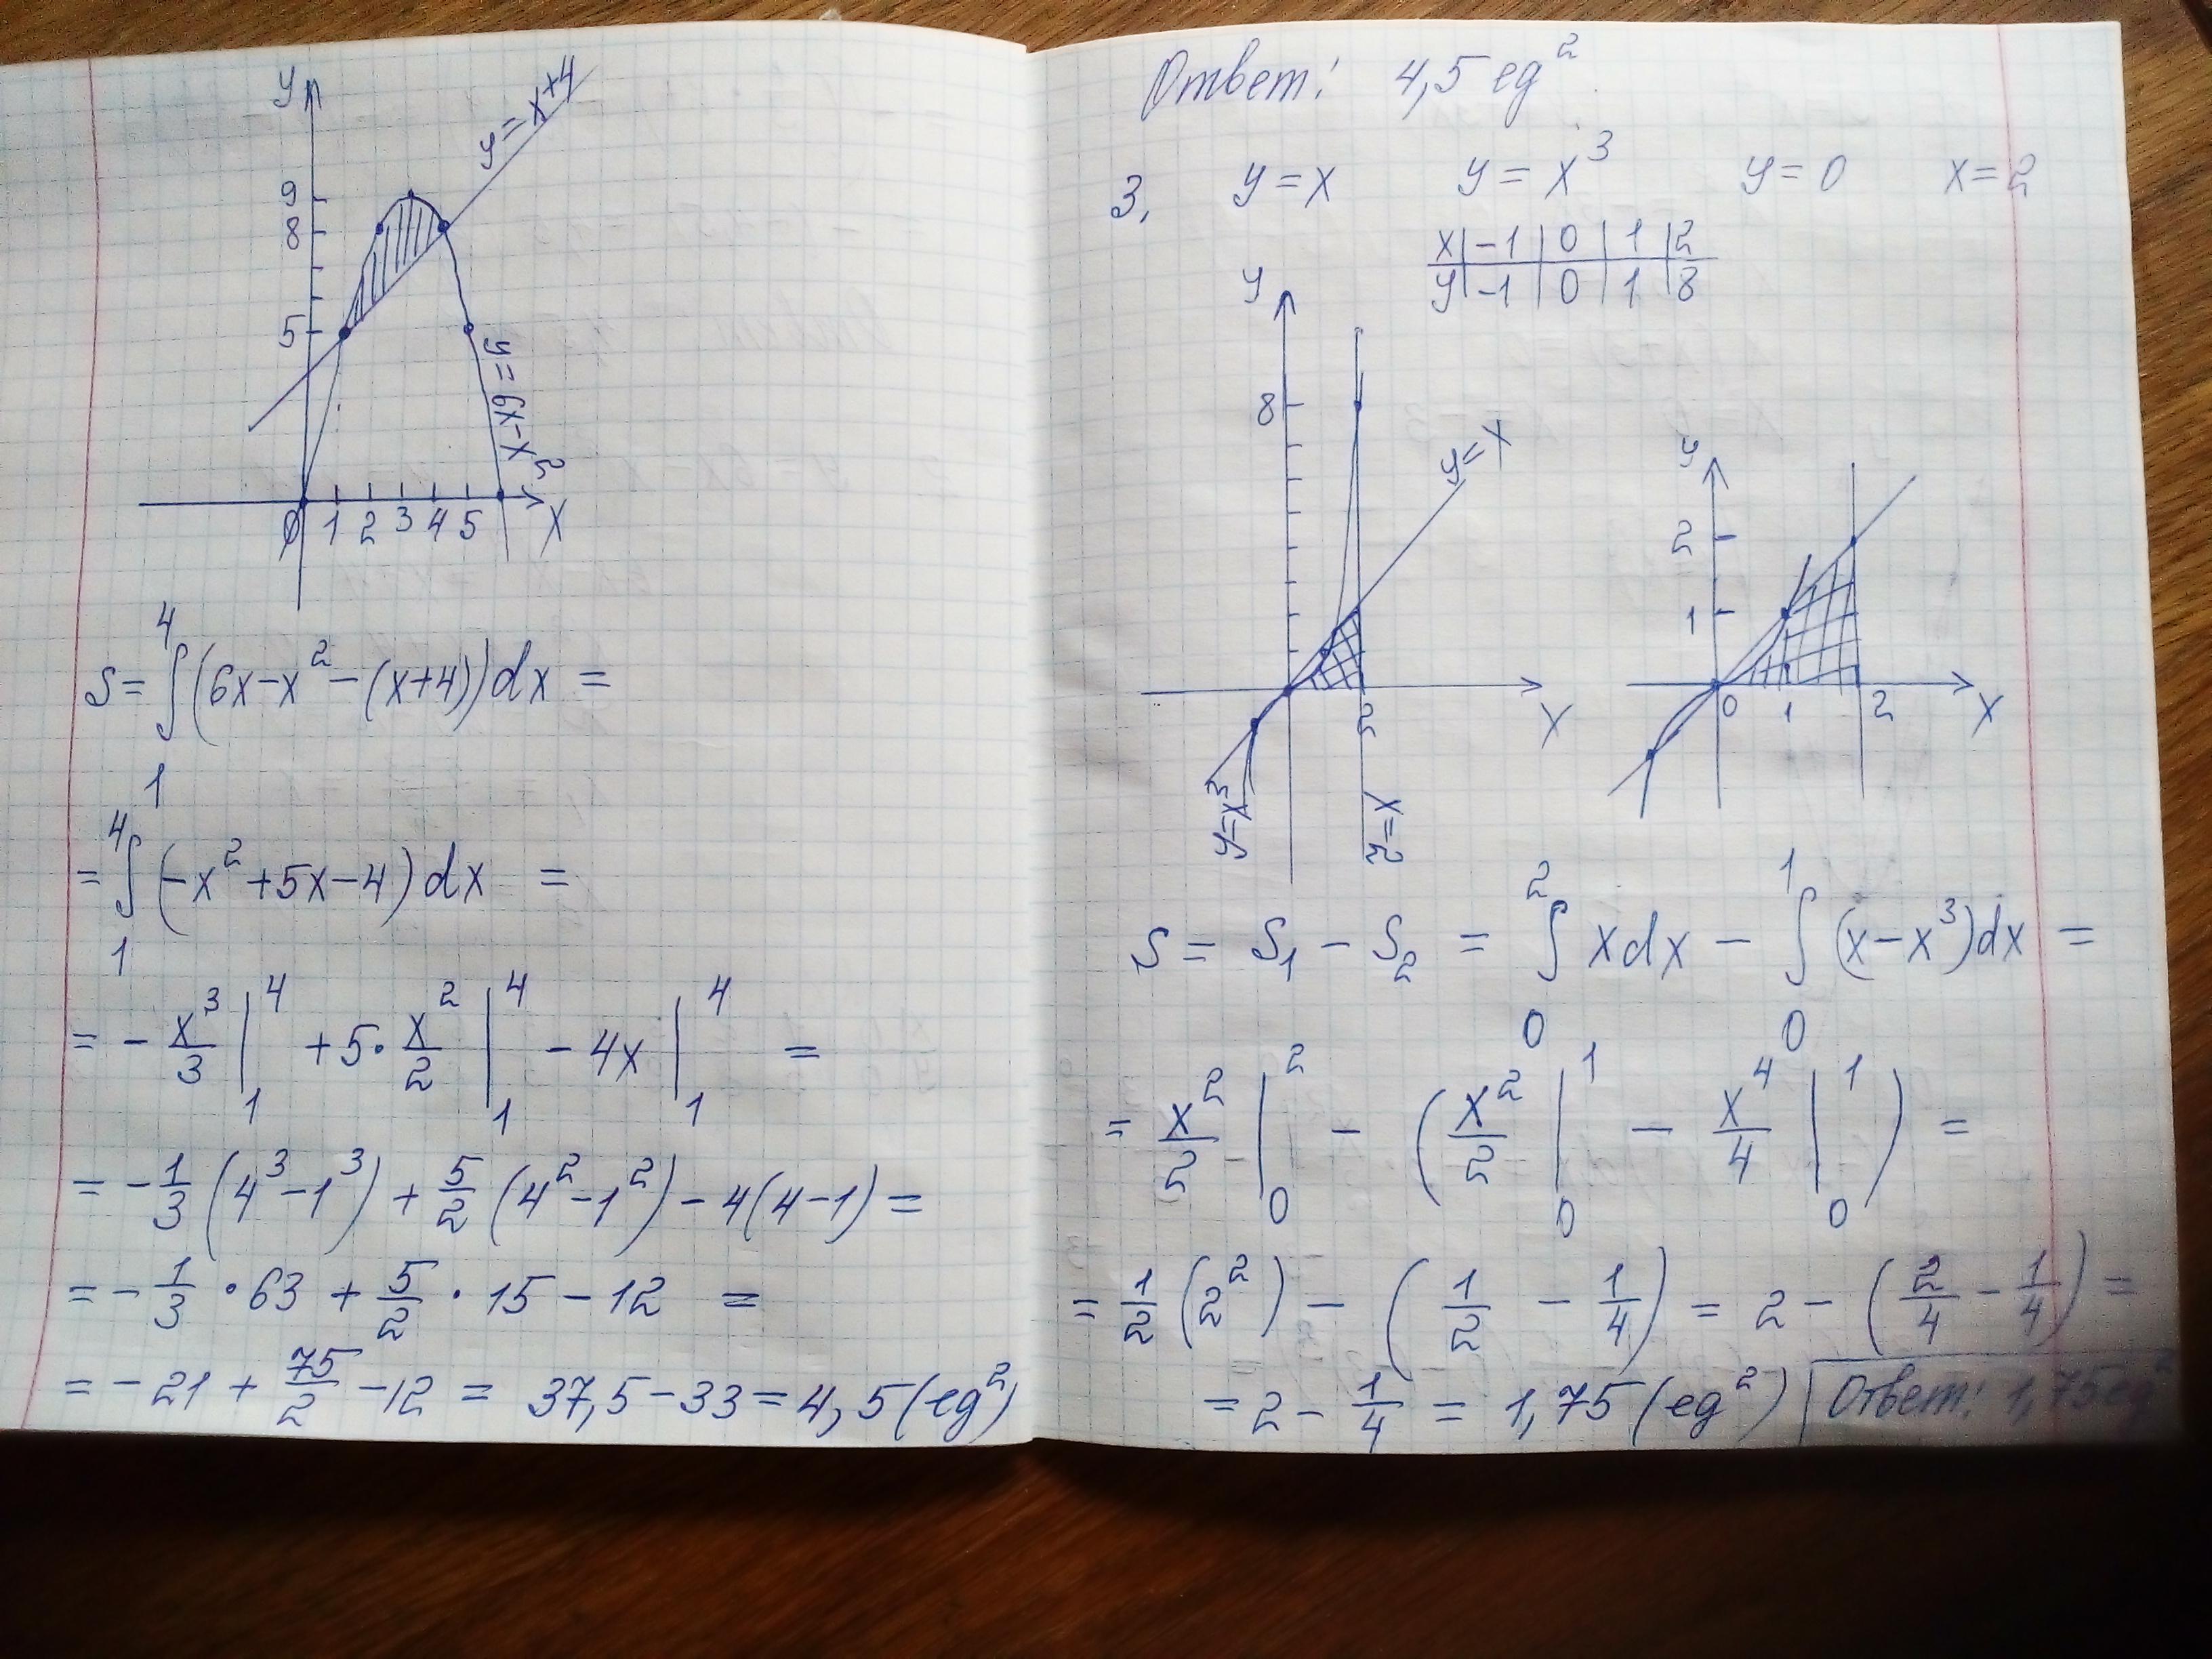 y
y=x+4
9
8
5
y=6x-x²
0 1 2 3 4 5 x
S=∫₁⁴(6x-x²-(x+4))dx=
=∫₁⁴(-x²+5x-4)dx =
= - x³/3 |₁⁴ +5· x²/2 |₁⁴ - 4x |₁⁴ =
= -1/3 (4³-1³) + 5/2 (4²-1²) - 4(4-1) =
= -1/3 · 63 + 5/2 · 15 - 12 =
= -21 + 75/2 - 12 = 37,5 - 33 = 4,5 (ед²)
Ответ: 4,5 ед²
3. y=x y=x³ y=0 x=2
x | -1 | 0 | 1 | 2
y | -1 | 0 | 1 | 8
y
8
y=x
2 x
y=x³
x=2
y
2
1
0 1 2 x
S = S₁ - S₂ = ∫₀² xdx - ∫₀¹ (x-x³)dx =
= x²/2 |₀² - (x²/2 |₀¹ - x⁴/4 |₀¹) =
= 1/2 (2²) - (1/2 - 1/4) = 2 - (2/4 - 1/4) =
= 2 - 1/4 = 1,75 (ед²) Ответ: 1,75 ед²